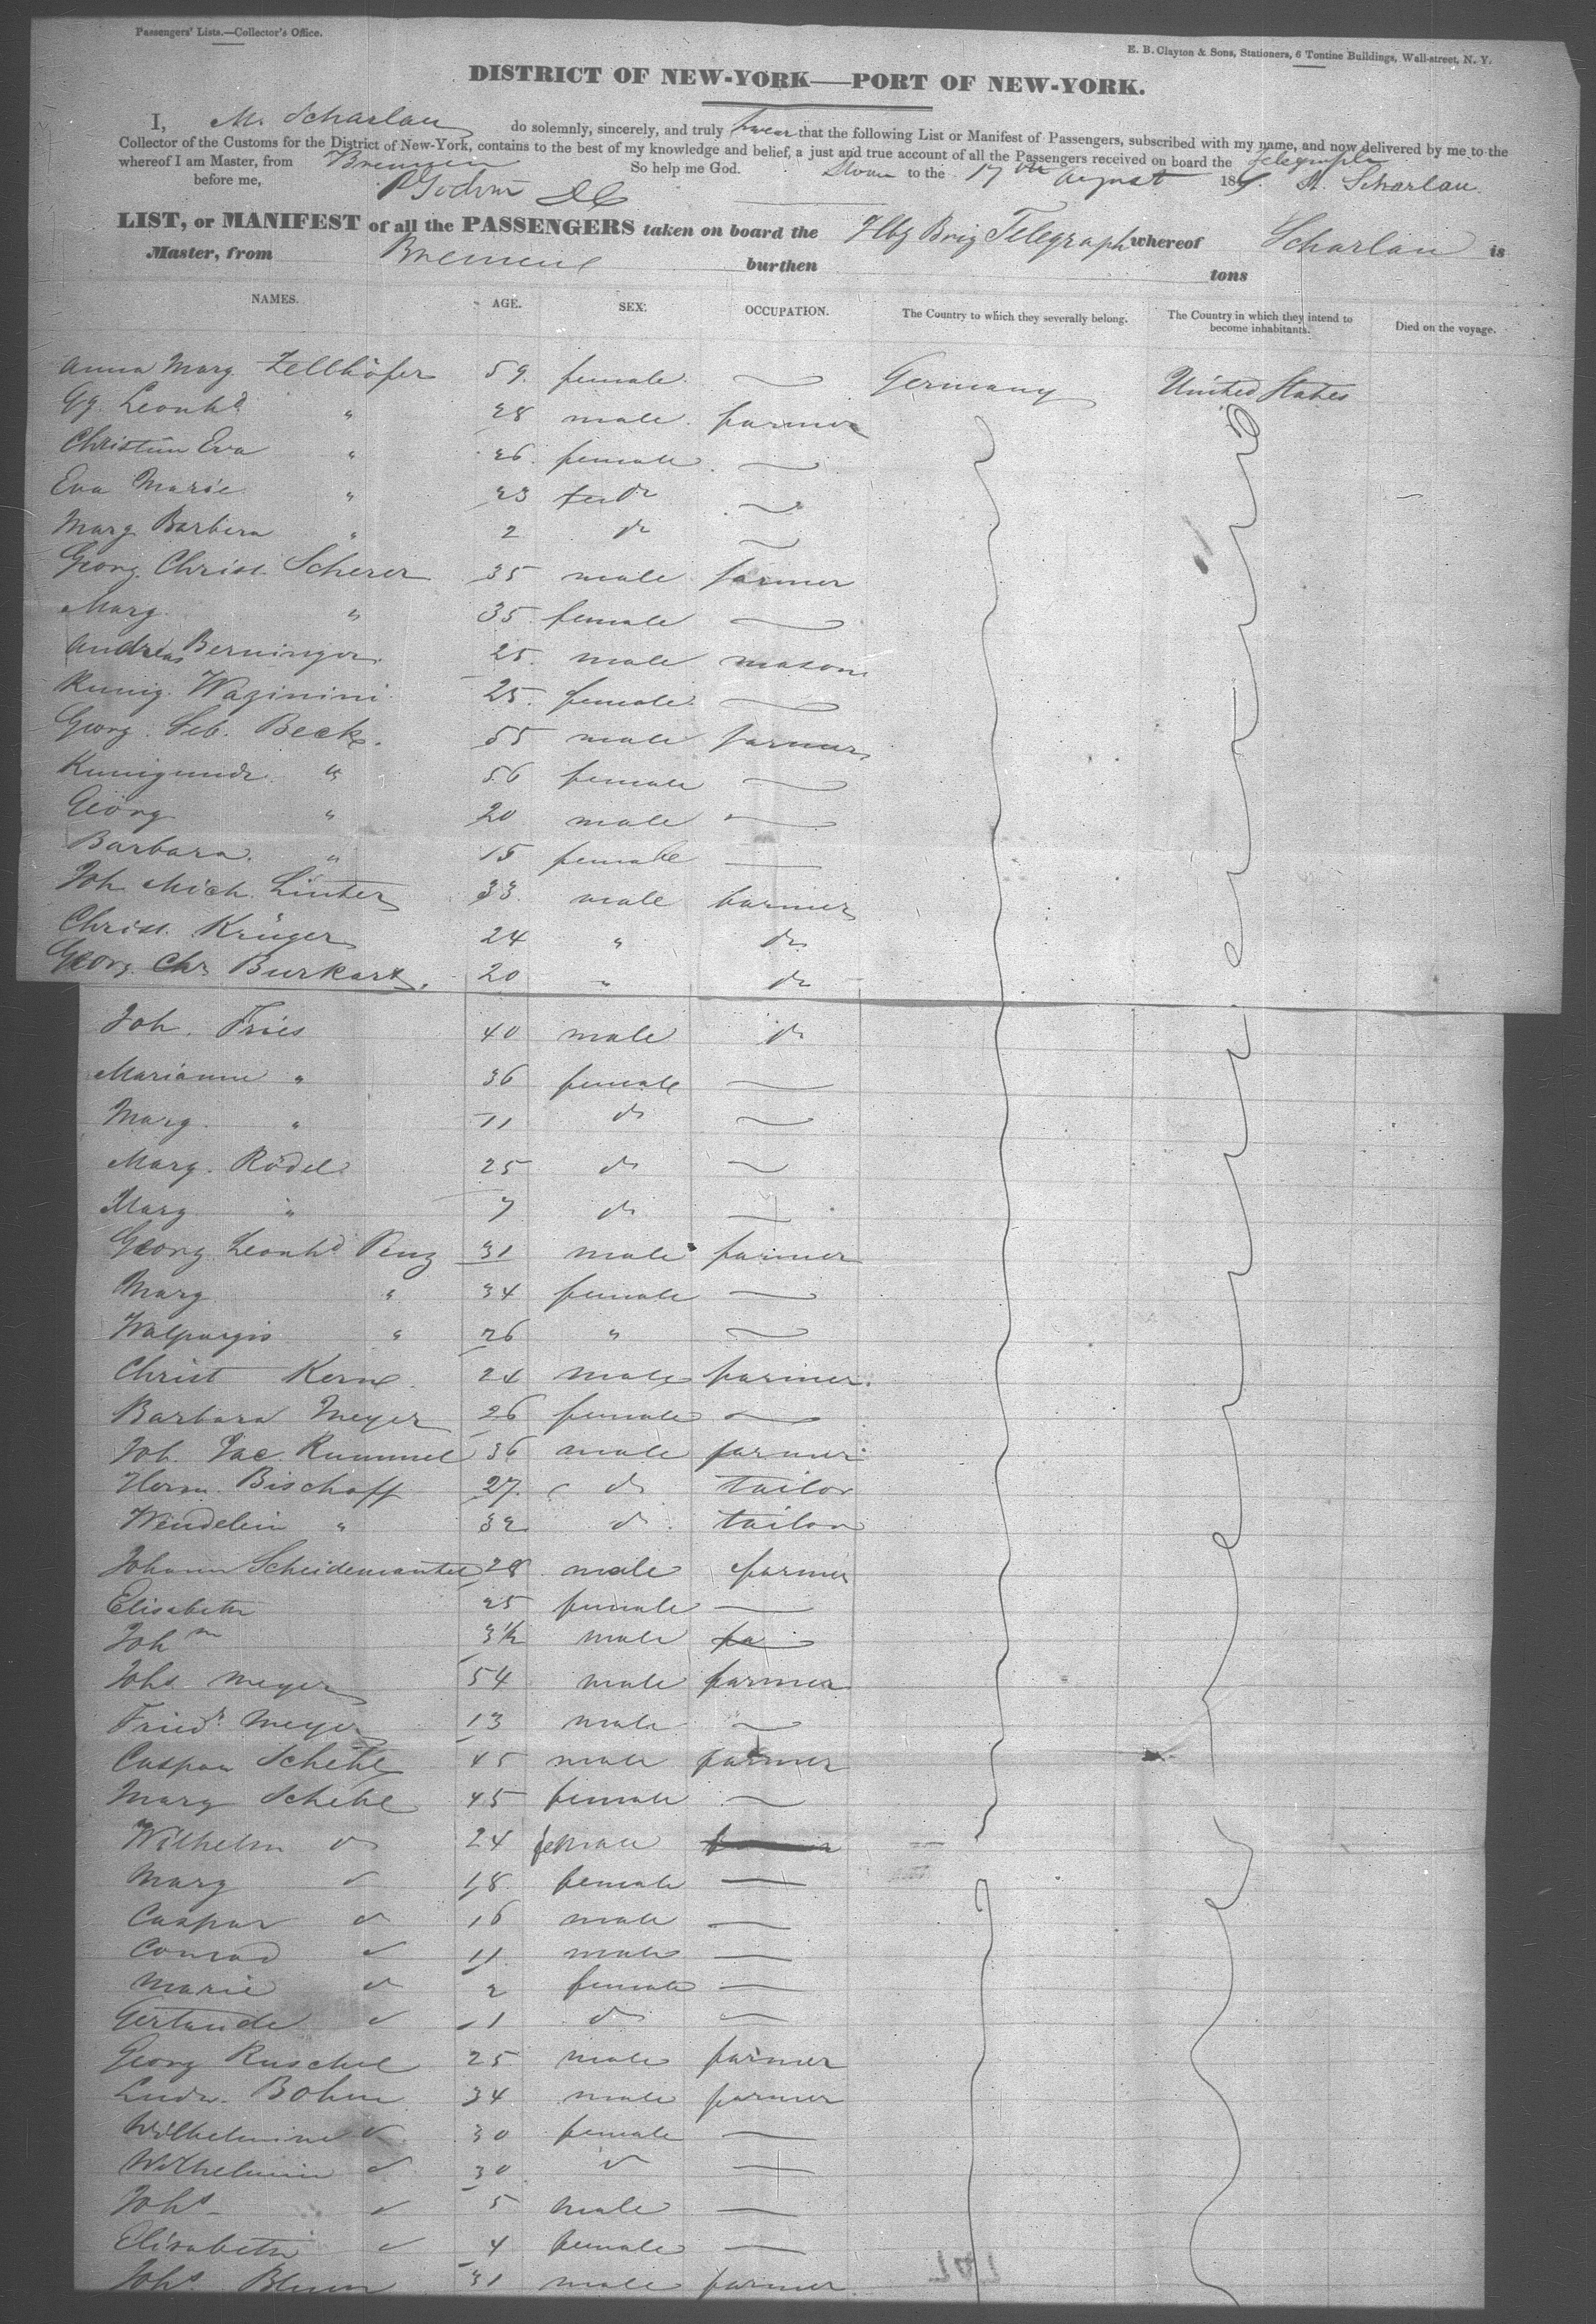 Passengers' Lists.—Collector's Office.
E. B. Clayton & Sons, Stationers, 6 Tontine Buildings, Wall-street, N. Y.
DISTRICT OF NEW-YORK—PORT OF NEW-YORK.
I, M. Scharlau do solemnly, sincerely, and truly swear that the following List or Manifest of Passengers, subscribed with my name, and now delivered by me to the
Collector of the Customs for the District of New-York, contains to the best of my knowledge and belief, a just and true account of all the Passengers received on board the Telegraph
whereof I am Master, from Bremen So help me God. Sworn to the 17th August 184
before me, M. Scharlau.
LIST, or MANIFEST of all the PASSENGERS taken on board the Hbg Brig Telegraph whereof Scharlau is
Master, from Bremen burthen tons
NAMES. AGE. SEX. OCCUPATION. The Country to which they severally belong. The Country in which they intend to become inhabitants. Died on the voyage.
Anna Marg Zellhöfer 59. female Germany United States
Gg. Leonhd " 28 male farmer
Christin Eva " 26 female
Eva Marie " 23 do
Marg Barbera " 2 do
Georg Christ. Scherer 35 male farmer
Marg. " 35 female
Andreas Berninger 25. male mason
Kunig. Wazinini 25. female
Georg Seb. Beck. 55 male farmer
Kunigunde " 56 female
Georg " 20 male
Barbara. " 15 female
Joh Mich. Linter 33. male farmer
Christ. Krüger 24 " do
Georg Chr Burkart. 20 " do
Joh. Fries 40 male do
Marianne " 36 female
Marg. " 11 do
Marg. Rödel 25 do
Marg " 7 do
Georg Leonhd Penz 31 male farmer
Marg " 34 female
Walpurgis " 26 "
Christ Kern 24 male farmer.
Barbara Meyer 26 female
Joh. Jac. Rummel 36 male farmer
Herm. Bischoff 27. do tailor
Wendelin " 32 do tailor
Johann Scheidemantel 28 male farmer
Elisabeth 25 female
Johm 3½ male fa
Johs Meyer 54 male farmer
Friedr Meyer 13 male
Caspar Schehl 45 male farmer
Marg Schehl 45 female
Wilhelm do 24 female
Marg do 18 female
Caspar do 16 male
Conrad do 11 male
Marie do 2 female
Gertrude do 1 do
Georg Ruschel 25 male farmer
Ludw. Bohm 34 male farmer
Wilhelmine do 30 female
Wilhelmin do 30 do
Johs do 5 male
Elisabeth do 4 female
Johs Blum 31 male farmer